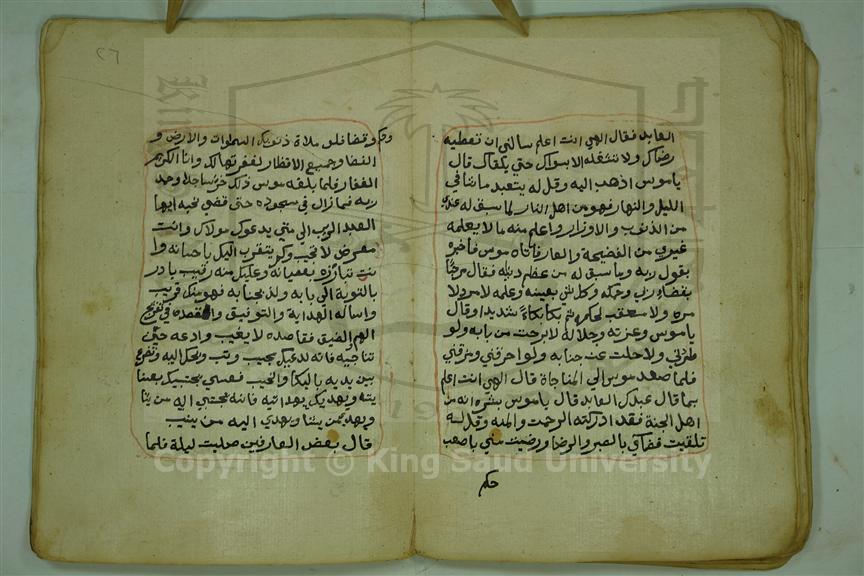 العابد فقال الهي انت اعلم سالني ان تعطيه
رضاك ولا تشغله الا بسواك حتي يلقاك قال
ياموسي اذهب اليه وقل له يتعبد ماشا في
الليل والنهار فهو من اهل النار لما سبق له عندي
من الذنوب والاوزار واعلم منه ما لا يعلمه
غيري من الفضيحة والعار فاتاه موسي فاخبره
بقول ربه وما سبق له من عظم ذنبه فقال مرحبا
بقضاء ربي وحكمه وكل شي بعينه وعلمه لا مرد لا
مره ولا معقب لحكمه ثم بكا بكاءً شديدا وقال
ياموسي وعزته وجلاله لا برحت من بابه ولو
طردني ولا حلت عن جنابه ولو احرقني ومزقني
فلما صعد موسي الي المناجاة قال الهي انت اعلم
بما قال عبدك العابد قال ياموسي بشره انه من
اهل الجنة فقد ادركته الرحمة والمنه وقل له
تلقيت قضآي بالصبر والرضا ورضيت مني باصعب
حكم
حكم وقضا فلو ملاة ذنوبك السموات والارض و
الفضا وجميع الاقطار لغفرتها لك وانا الكريم
الغفار فلما بلغه موسي ذلك خر ساجدا وحمد
ربه فما زال في سجوده حتي قضي نحبه ايها
العبد الي متي يدعوك مولاك وانت
معرض لا تجيب وكم يتقرب اليك باحسانه وا
نت تبارزه بعصيانه وعليك منه رقيب بادر
بالتوبة الي بابه ولذ بجنابه فهو منك قريب
واساله الهداية والتوفيق واقصده في تفريج
الهم والضيق فقاصده لا يغيب وادعه حتي
تناجيه فانه لدعيك يجيب وتب ويحك اليه وتضرع
بين يديه بالبكا والنحيب فعسي يجتبيك بعنا
يته ويهديك بهدائيته فانه يجتبي اليه من يشا
ويهدي من يشا ويهدي اليه من ينيب
قال بعض العارفين صليت ليلة فلما
٢٦
Copyright © King Saud University